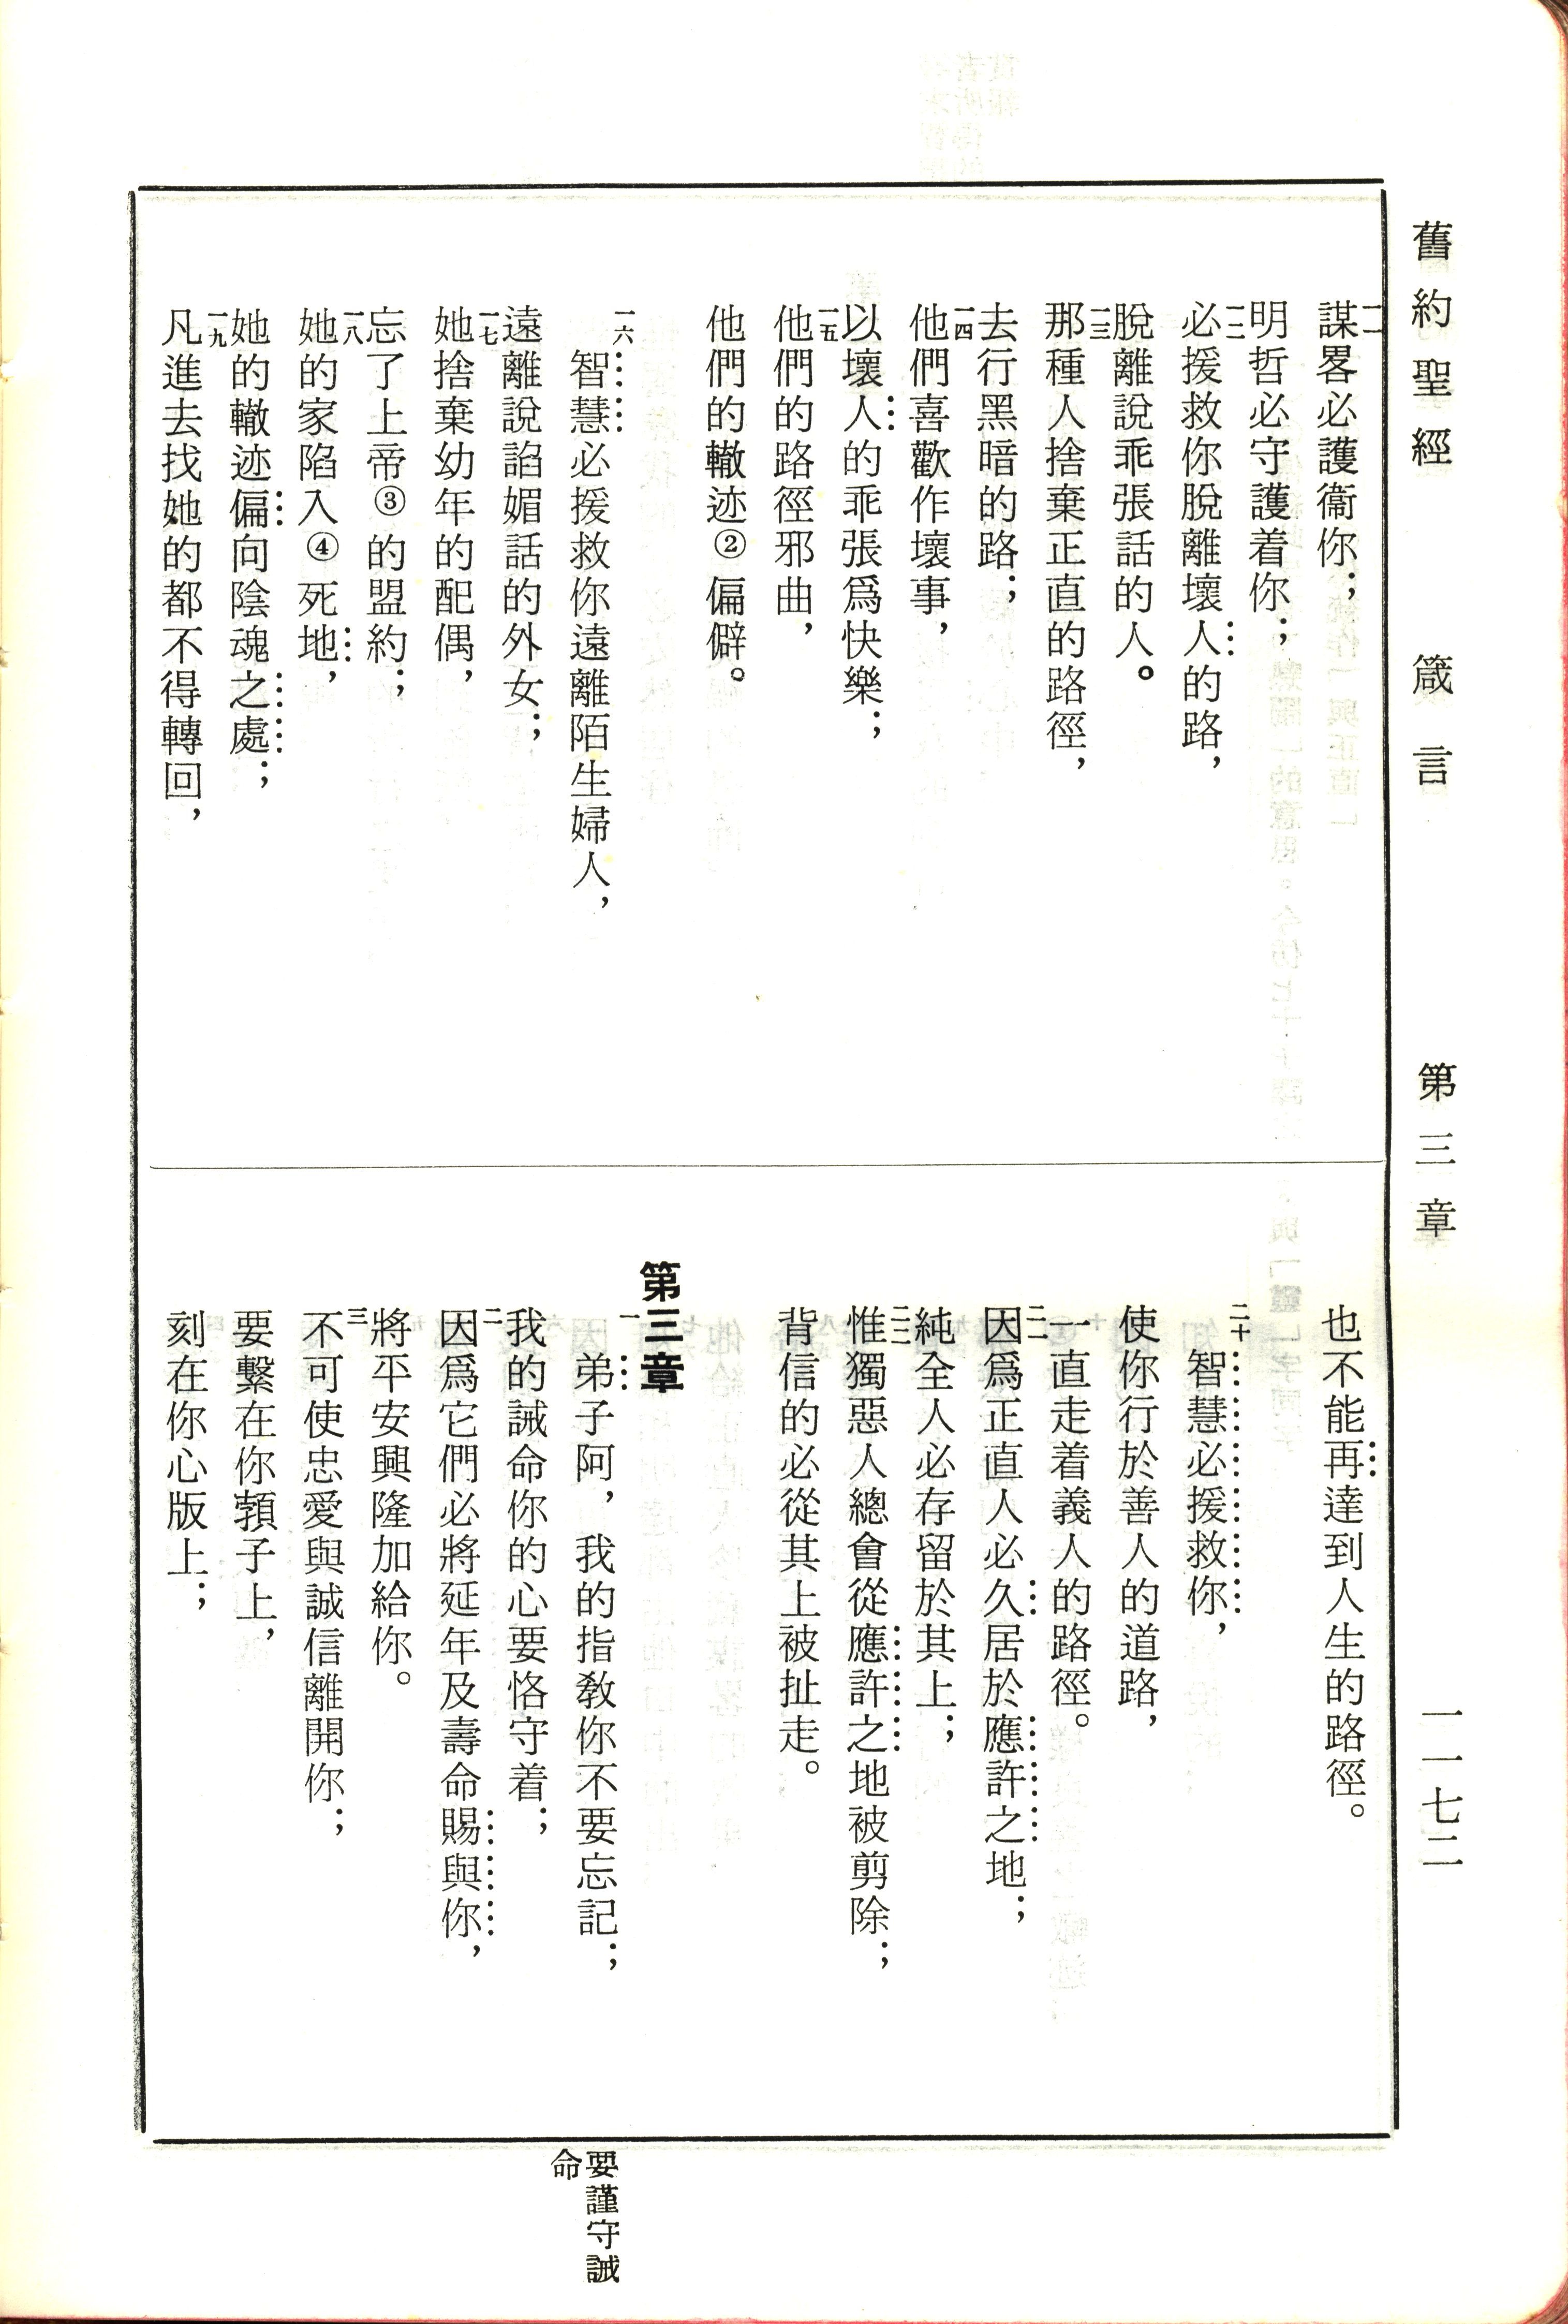 舊約聖經　箴言　第三章　一一七二
一一謀畧必護衞你；
明哲必守護着你；
一二必援救你脫離壞人的路，
脫離說乖張話的人。
一三那種人捨棄正直的路徑，
去行黑暗的路；
一四他們喜歡作壞事，
以壞人的乖張爲快樂；
一五他們的路徑邪曲，
他們的轍迹②偏僻。
一六智慧必援救你遠離陌生婦人，
遠離說諂媚話的外女；
一七她捨棄幼年的配偶，
忘了上帝③的盟約；
一八她的家陷入④死地，
她的轍迹偏向陰魂之處；
一九凡進去找她的都不得轉回，
也不能再達到人生的路徑。
二十智慧必援救你，
使你行於善人的道路，
一直走着義人的路徑。
二一因爲正直人必久居於應許之地；
純全人必存留於其上；
二二惟獨惡人總會從應許之地被剪除；
背信的必從其上被扯走。
第三章
一弟子阿，我的指教你不要忘記；
我的誡命你的心要恪守着；
二因爲它們必將延年及壽命賜與你，
將平安興隆加給你。
三不可使忠愛與誠信離開你；
要繫在你頸子上，
刻在你心版上；
要謹守誡
命